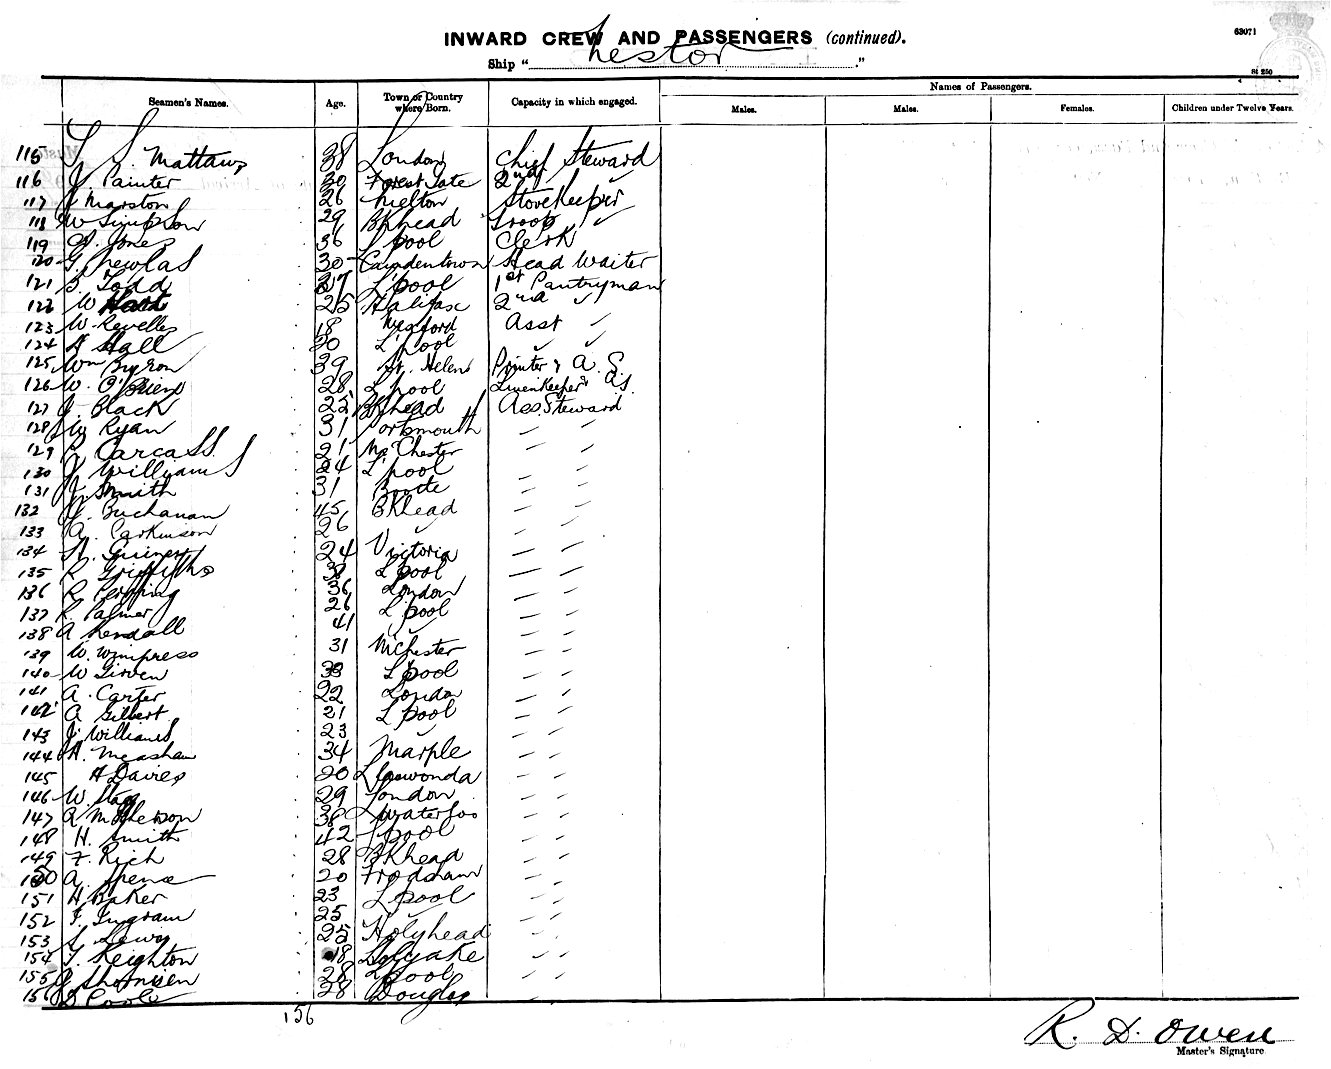 63071
INWARD CREW AND PASSENGERS (continued).
Ship " Nestor "
St 250
Names of Passengers.
Seamen's Names. Age. Town or Country where Born. Capacity in which engaged. Males. Males. Females. Children under Twelve Years.
115 S. Mattaws 38 London Chief Steward
116 J. Painter 30 Forest Gate 2nd ✓
117 J Marston 26 Melton Storekeeper
118 W Simpson 29 BKhead Troop ✓
119 Jones 36 L'pool Clerk
120 G. Newlas 30 Camdentown Head Waiter
121 S. Todd 27 L'pool 1st Pantryman
122 W Hart 25 Halifax 2nd ✓
123 W. Revelles 18 Asst ✓
124 A Hall 20 L'pool ✓ ✓
125 Wm Byron 39 St. Helens Printer & A. S.
126 W. O'Brien 28 L'pool Linenkeeper & AS.
127 J. Black 25 BKhead Ass. Steward
128 Ryan 31 Portsmouth
129 Carcass 21 McChester
130 J Williams 24 L'pool
131 J Smith 31 Bootle
132 Buchanan 45 BKhead
133 A. Parkinson 26 ✓
134 24 Victoria
135 R Griffiths 38 L'pool
136 R Pepping 36 London
137 R. Palmer 26 L'pool
138 A Kendall 41 ✓
139 W. Wimpress 31 McChester
140 W Girven 33 L'pool
141 A. Carter 22 London
142 A Gilbert 21 L'pool
143 J Williams 23 ✓
144 H. Measham 34 Marple
145 A Davies 20 Llanwonda
146 W. Stag 29 London
147 A McPherson 38 Waterloo
148 H. Smith 42 L'pool
149 F. Rich 28 BKhead
150 A. Spence 20 Frodsham
151 H Baker 23 L'pool
152 F. Ingram 25 ✓
153 Lewis 25 Holyhead
154 T. Keighton 18 Holyake
155 J Thomsen 28 L'pool
156 Coole 28 Douglas
156
R. D. Owen
Master's Signature